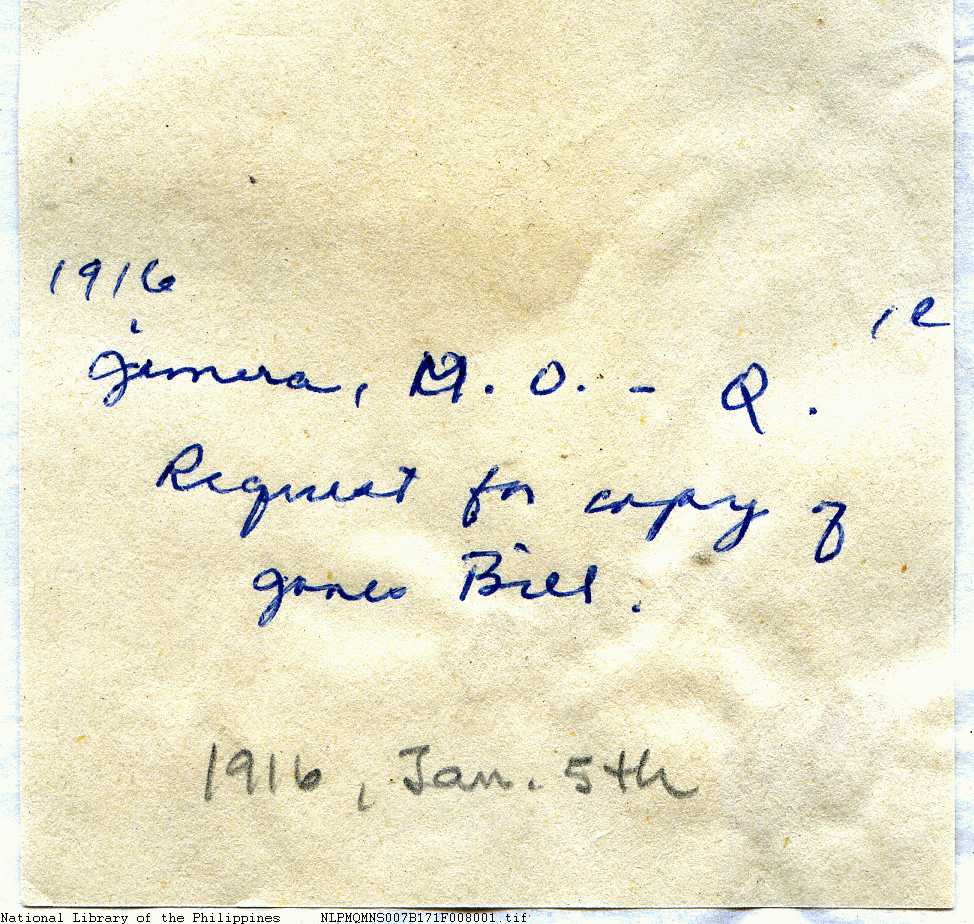 1916
, c
Jimera, M. O. - Q.
Request for copy of
Jones Bill.
1916, Jan. 5th
National Library of the Philippines NLPMQMNS007B171F008001.tif